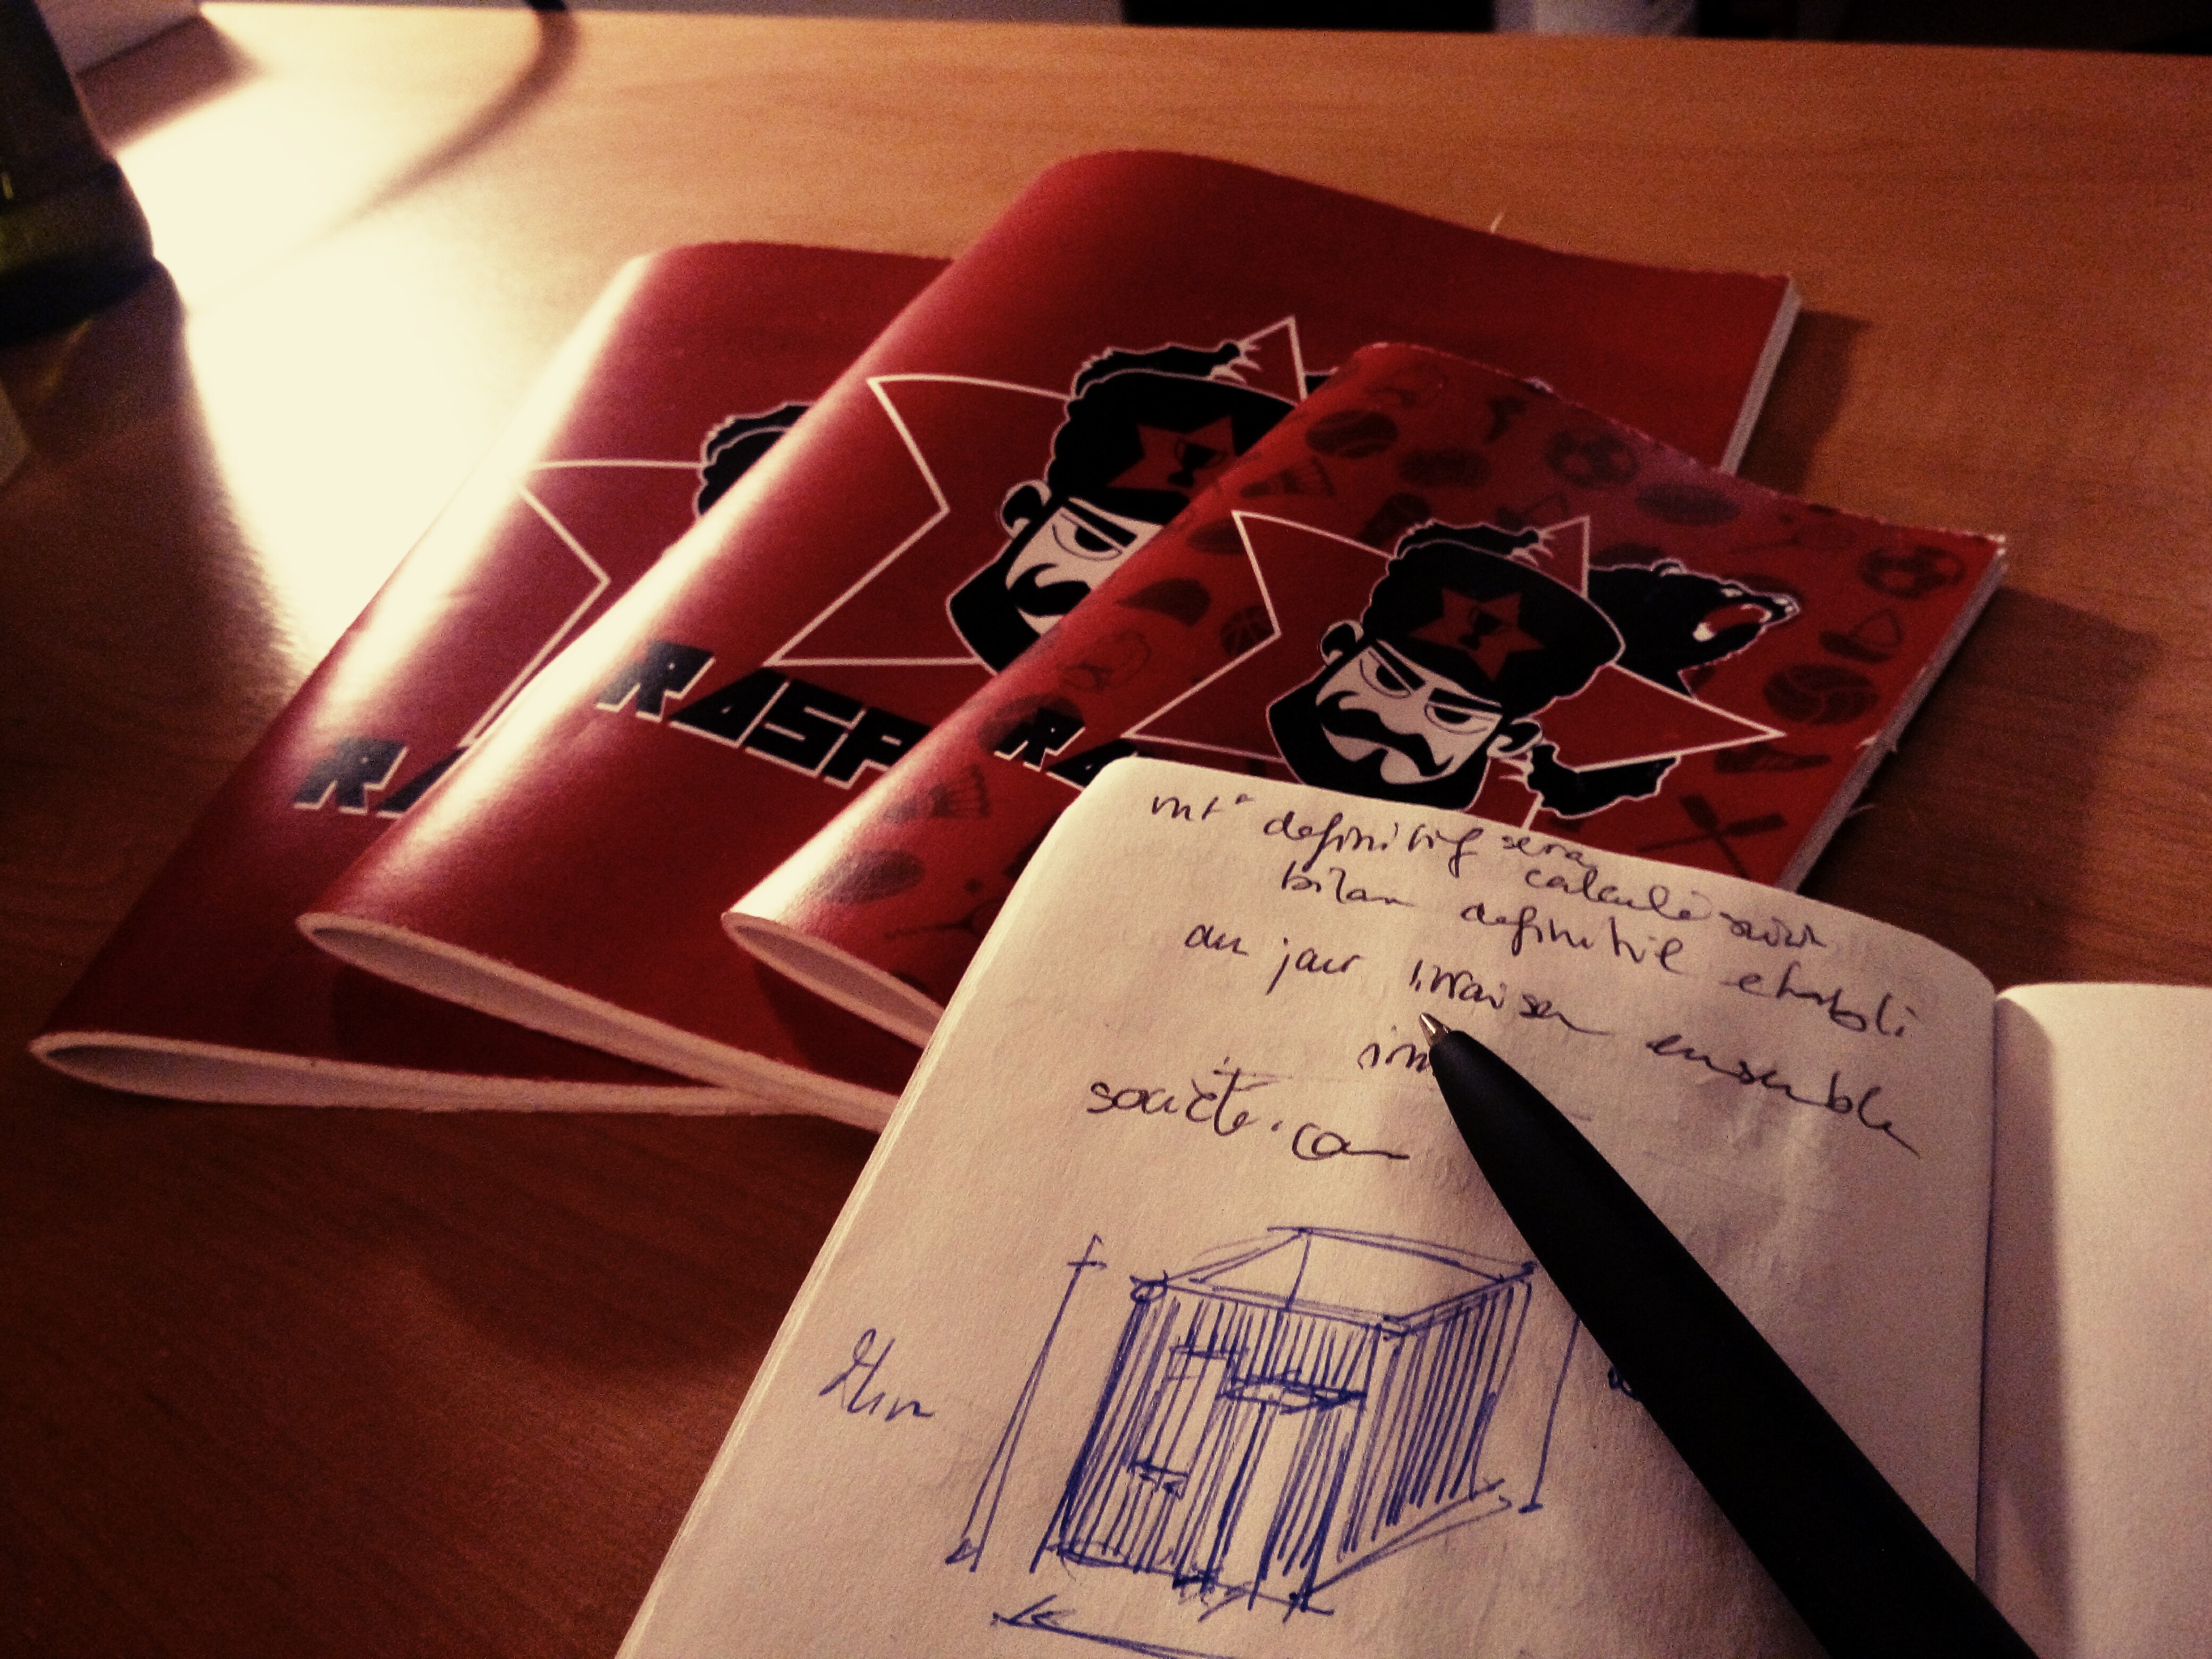 RA
RASP
RA
definitif sera
calculé suivr
bilan definitif etabli
au jour livraison ensemble
societe.com